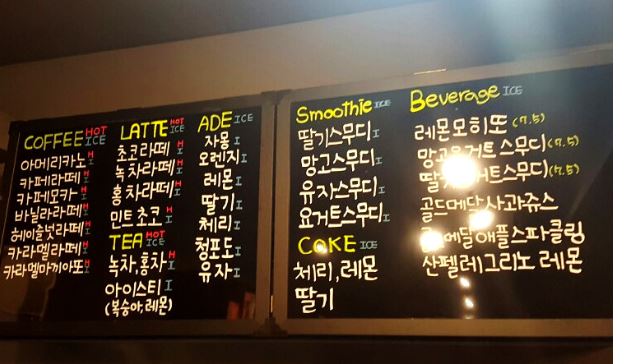 COFFEE HOT ICE
아메리카노 H I
카페라떼 H I
카페모카 H I
바닐라라떼 H I
헤이즐넛라떼 H I
카라멜라떼 H I
카라멜마끼아또 H I
LATTE HOT ICE
초코라떼 H I
녹차라떼 H I
홍차라떼 H I
민트초코 H I
TEA HOT ICE
녹차,홍차 H I
아이스티 I
(복숭아,레몬)
ADE ICE
자몽 I
오렌지 I
레몬 I
딸기 I
체리 I
청포도 I
유자 I
Smoothie ICE
딸기스무디 I
망고스무디 I
유자스무디 I
요거트스무디 I
COKE ICE
체리,레몬
딸기
Beverage ICE
레몬모히또 (7.5)
망고요거트스무디 (7.5)
딸기요거트스무디 (7.5)
골드메달 사과쥬스
메달애플스파클링
산펠레그리노 레몬